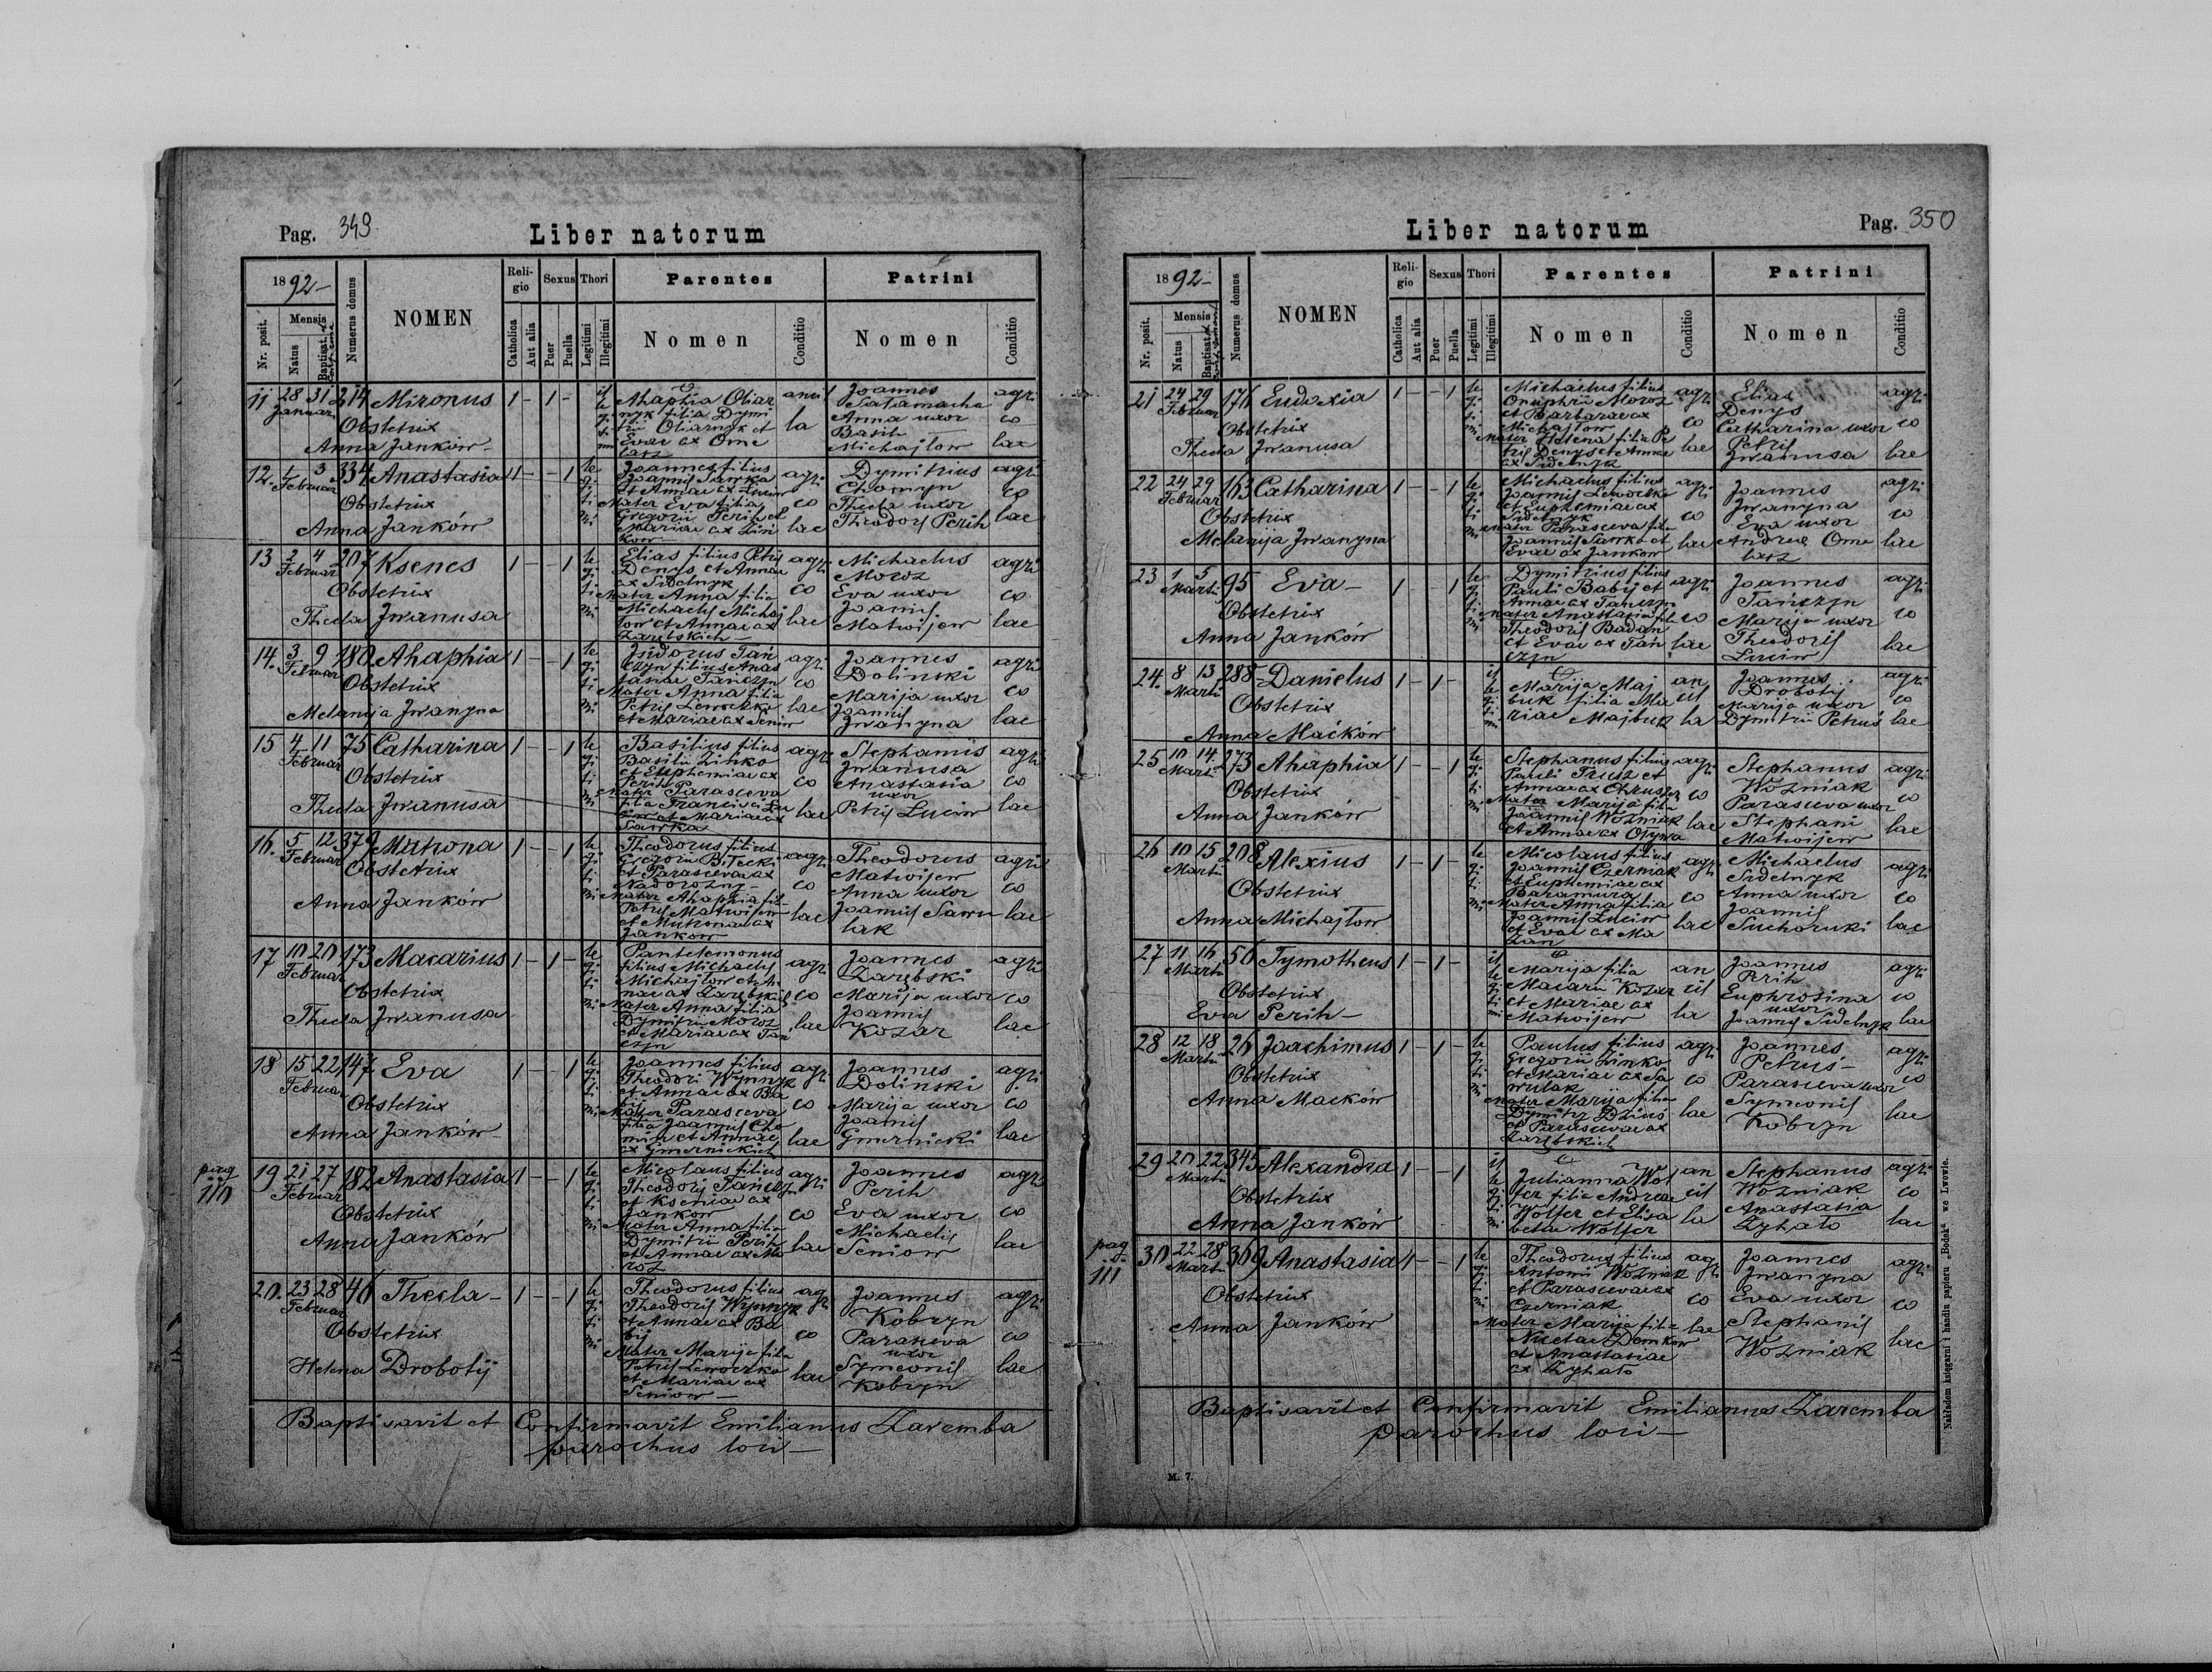 Pag. 349
Liber natorum
1892-
Numerus domus
NOMEN
Religio
Sexus
Thori
Parentes
Patrini
Nr. posit.
Mensis
Natus
Baptisat.
Catholica
Aut alia
Puer
Puella
Legitimi
Illegitimi
Nomen
Conditio
Nomen
Conditio
11 28 31 214 Mironus 1 - 1 -
Januar
Obstetrix
Anna Janków
Ahaphia Oliar
nyk filia Dymi
trii Oliarnyk et
Evae ex Ome
lasz
Joannes
Salamacha
Anna uxor
Basilii
Michajlow
agri
co
lae
12. 1 3 334 Anastasia 1 - - 1
Februar
Obstetrix
Anna Janków
Joannes filius
Joannis Sawka
et Annae ex Luciw
Mater Eva filia
Gregorii Perih et
Mariae ex Zin
kow
agri
co
lae
Dymitrius
Chomyn
Thecla uxor
Theodori Perih
agri
co
lae
13 2 4 207 Ksenes 1 - - 1
Februar
Obstetrix
Thecla Jwanusa
Elias filius Petri
Denys et Annae
ex Sidelnyk
Mater Anna filia
Michaelis Michaj
low et Annae ex
Zarębskich
agri
co
lae
Michaelus
Moroz
Eva uxor
Joannis
Matwijew
agri
co
lae
14. 3 9 180 Ahaphia 1 - - 1
Februar
Obstetrix
Melanija Jwanyna
Isidorus Tań
czyn filius Anas
tasiae Tańczyn
Mater Anna filia
Petris Lewoczko
et Mariae ex Seniw
agri
co
lae
Joannes
Dolinski
Marija uxor
Joannis
Jwanyna
agri
co
lae
15 4 11 75 Catharina 1 - - 1
Februar
Obstetrix
Thecla Jwanusa
Basilius filius
Basilii Zinko
et Euphemiae ex
Perih
Mater Parasceva
filia Francisci Lu
ciw et Mariae ex
Sawka
agri
co
lae
Stephanus
Jwanusa
Anastasia
uxor
Petris Luciw
agri
co
lae
16. 5 12 379 Matrona 1 - - 1
Februar
Obstetrix
Anna Janków
Theodorus filius
Gregorii Bilecki
et Parascevae ex
Nadorozny
Mater Ahaphia fil-
Petris Matwijew
et Matronae ex
Jankow
agri
co
lae
Theodorus
Matwijew
Anna uxor
Joannis Sawu
lak
agri
co
lae
17 10 20 173 Macarius 1 - 1 -
Februar
Obstetrix
Thecla Jwanusa
Pantelemonus
filius Michaelis
Michajlow et An
nae ex Zarębskich
Mater Anna filia
Dymitrii Moroz
et Mariae ex Tan
czyn
agri
co
lae
Joannes
Zarębski
Marija uxor
Joannis
Kozar
agri
co
lae
18 15 22 147 Eva 1 - - 1
Februar
Obstetrix
Anna Janków
Joannes filius
Theodori Wynnyk
et Annae ex Ba
bij
Mater Parasceva
filia Joannis Cho
min et Annae
ex Gmernickich
agri
co
lae
Joannes
Dolinski
Marija uxor
Joannis
Gmernicki
agri
co
lae
pag
110
19 21 27 182 Anastasia 1 - - 1
Februar
Obstetrix
Anna Janków
Nicolaus filius
Theodori Tańczyn
et Kseniae ex
Jankow
Mater Anna filia
Dymitrii Perih
et Annae ex Mo
roz
agri
co
lae
Joannes
Perih
Eva uxor
Michaelis
Seniow
agri
co
lae
20. 23 28 46 Thecla - 1 - - 1
Februar
Obstetrix
Helena Drobotij
Theodorus filius
Theodoris Wynnyk
et Annae ex Ba
bij
Mater Marija filia
Petris Lewoczko
et Mariae ex
Seniow
agri
co
lae
Joannes
Kobryn
Parasceva
uxor
Symeonis
Kobryn
agri
co
lae
Baptisavit et Confirmavit Emilianus Zaremba
parochus loci -
Liber natorum
Pag. 350
1892-
Numerus domus
NOMEN
Religio
Sexus
Thori
Parentes
Patrini
Nr. posit.
Mensis
Natus
Baptisat.
Catholica
Aut alia
Puer
Puella
Legitimi
Illegitimi
Nomen
Conditio
Nomen
Conditio
21 24 29 176 Eudoxia 1 - - 1
Februar
Obstetrix
Thecla Jwanusa
Michaelus filius
Onuphrii Moroz
et Barbarae ex
Michajlow
Mater Helena filia Pe
tris Denys et Annae
ex Sidelnyk
agri
co
lae
Elias
Denys
Catharina uxor
Petris
Jwanusa
agri
co
lae
22 24 29 163 Catharina 1 - - 1
Februar
Obstetrix
Melanija Jwanyna
Michaelus filius
Joannis Lewoczko
et Euphemiae ex
Sidelnyk
Mater Parasceva filia
Joannis Sawka et
Evae ex Jankow
agri
co
lae
Joannes
Jwanyna
Eva uxor
Andreae Ome
lasz
agri
co
lae
23 1 5 95 Eva - 1 1
Martii
Obstetrix
Anna Janków
Dymitrius filius
Pauli Babij et
Annae ex Tanczyn
Mater Anastasia fil
Theodoris Badan
et Evae ex Tań
czyn
agri
co
lae
Joannes
Tańczyn
Marija uxor
Theodoris
Luciw
agri
co
lae
24. 8 13 288 Danielus 1 - 1 -
Martii
Obstetrix
Anna Maćków
Marija Maj
buk filia Ma
riae Majbuk
an
cil
la
Joannes
Drobotij
Marija uxor
Dymitrii Petruś
agri
co
lae
25 10 14 273 Ahaphia 1 - - 1
Martii
Obstetrix
Anna Janków
Stephanus filius
Pauli Trusz et
Annae ex
Mater Marija filia
Joannis Wozniak
et Annae ex
agri
co
lae
Stephanus
Wozniak
Parasceva uxor
Stephani
Matwijew
agri
co
lae
26 10 15 208 Alexius 1 - 1 -
Martii
Obstetrix
Anna Michajlow
Nicolaus filius
Joannis Czerniak
et Euphemiae ex
Baramura
Mater Anna filia
Joannis Luciw
et Evae ex Ma
zan
agri
co
lae
Michaelus
Sidelnyk
Anna uxor
Joannis
Suchoruki
agri
co
lae
27 11 16 56 Tymotheus 1 - 1 -
Martii
Obstetrix
Eva Perih -
Marija filia
Macarii Kozar
et Mariae ex
Matwijew
an
cil
la
Joannes
Perih
Euphrosina
uxor
Joannis Sidelnyk
agri
co
lae
28 12 18 26 Joachimus 1 - 1 -
Martii
Obstetrix
Anna Maćków
Paulus filius
Gregorii Zinko
et Mariae ex Sa
wulak
Mater Marija filia
Dymitry Dzius
et Parascevae ex
Zarębskich
agri
co
lae
Joannes
Petruś -
Parasceva uxor
Symeonis
Kobryn
agri
co
lae
29 20 22 345 Alexandra 1 - - 1
Martii
Obstetrix
Anna Janków
Julianna Wol
fer filia Andreae
Wolfer et Elisa
betha Wolfer
an
cil
la
Stephanus
Wozniak
Anastasia
Zyhało
agri
co
lae
pag
111
30 22 28 309 Anastasia 1 - - 1
Martii
Obstetrix
Anna Janków
Theodorus filius
Antonii Wozniak
et Parascevae ex
Czerniak
Mater Marija filia
Nicetae Domkow
et Anastasiae
ex Zyhało
agri
co
lae
Joannes
Jwanyna
Eva uxor
Stephanis
Wozniak
agri
co
lae
Baptisavit et Confirmavit Emilianus Zaremba
parochus loci -
M. 7.
Nakładem księgarni i handlu papieru „Bodek“ we Lwowie.